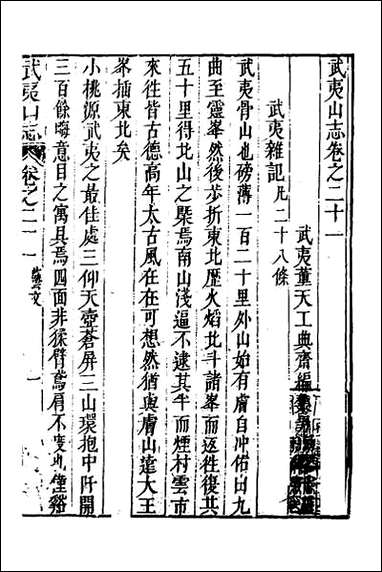 武夷山志卷之二十一
武夷董天工典齋編
武夷雜記凡二十八條
武夷骨山也磅薄一百二十里外山始有膚自冲佑由九
曲至靈峯然後步折東北歷火熖北斗諸峯而返徃復其
五十里得北山之槩焉南山淺逼不逮其半而煙村雲市
來徃皆古德高年太古風在在可想然猶與膚山遠大王
峯插東北矣
小桃源武夷之最佳處三仰天壺蒼屏三山環抱中阡開
三百餘畮意目之寓具焉四面非猱臂鳶肩不度也僅谿
武夷山志
卷之二十一
藝文
一